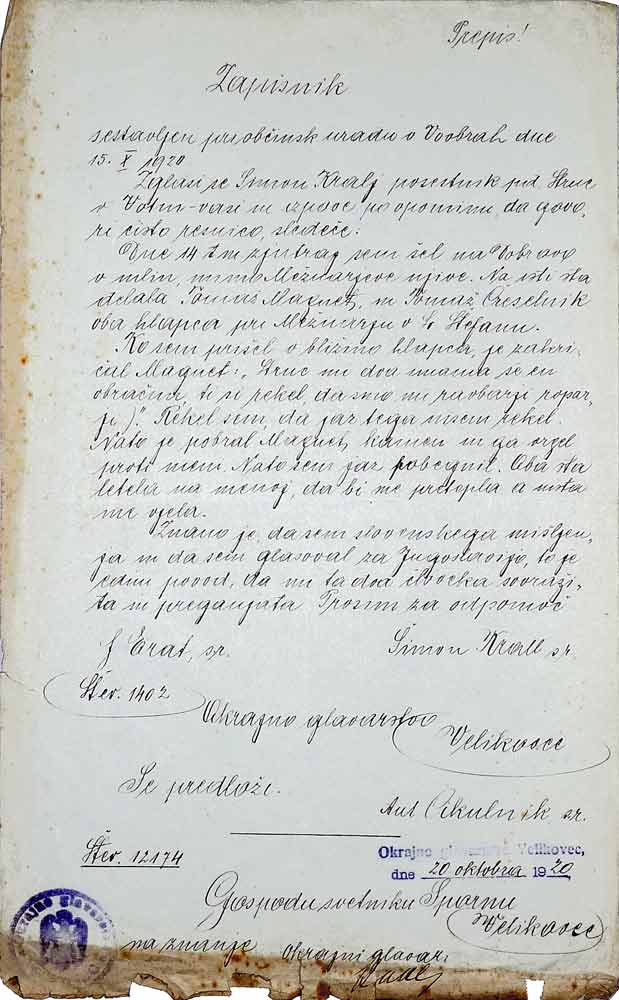 Prepis!
Zapisnik
sestavljen pri občinsk uradu v Vovbrah dne
15. X 1920
Zglasi se Simon Kralj posestnik pd. Struc
v Votni-vasi in izpove po opominu, da govo,
ri čisto resnico, sledeče:
Dne 14 t m zjutraj sem šel na Dobravo
v mlin, mimo Mežnarjeve njive. Na isti sta
delala Tomaž Magnet, in Tomaž Creselnik
oba hlapca pri Mežnarju v Št. Štefanu.
Ko sem prišel v bližino hlapca, je zakri,
čal Magnet: "Struc mi dva imama še en
obračun, ti si rekel, da smo mi ravbarji ropar-
ji)". Rekel sem, da jaz tega nisem rekel.
Nato je pobral Magnet, kamen in ga vrgel
proti meni. Nato sem jaz pobegnil. Oba sta
letela za menoj, da bi me pretepla a nista
me vjela.
Znano je, da sem slovenskega mišljen,
ja in da sem glasoval za Jugoslavijo, to je
edini povod, da mi ta dva človeka sovraži,
ta in preganjata. Prosim za odpomoč
J Erat, sr. Šimon Krall sr.
Štev. 1402
Okrajno glavarstvo
Velikovec
Se predloži.
Ant sr.
Štev. 12174
Okrajno glavarstvo Velikovec,
dne 20 oktobra 1920
Gospodu svetniku
Velikovec
na znanje
Okrajni glavar: